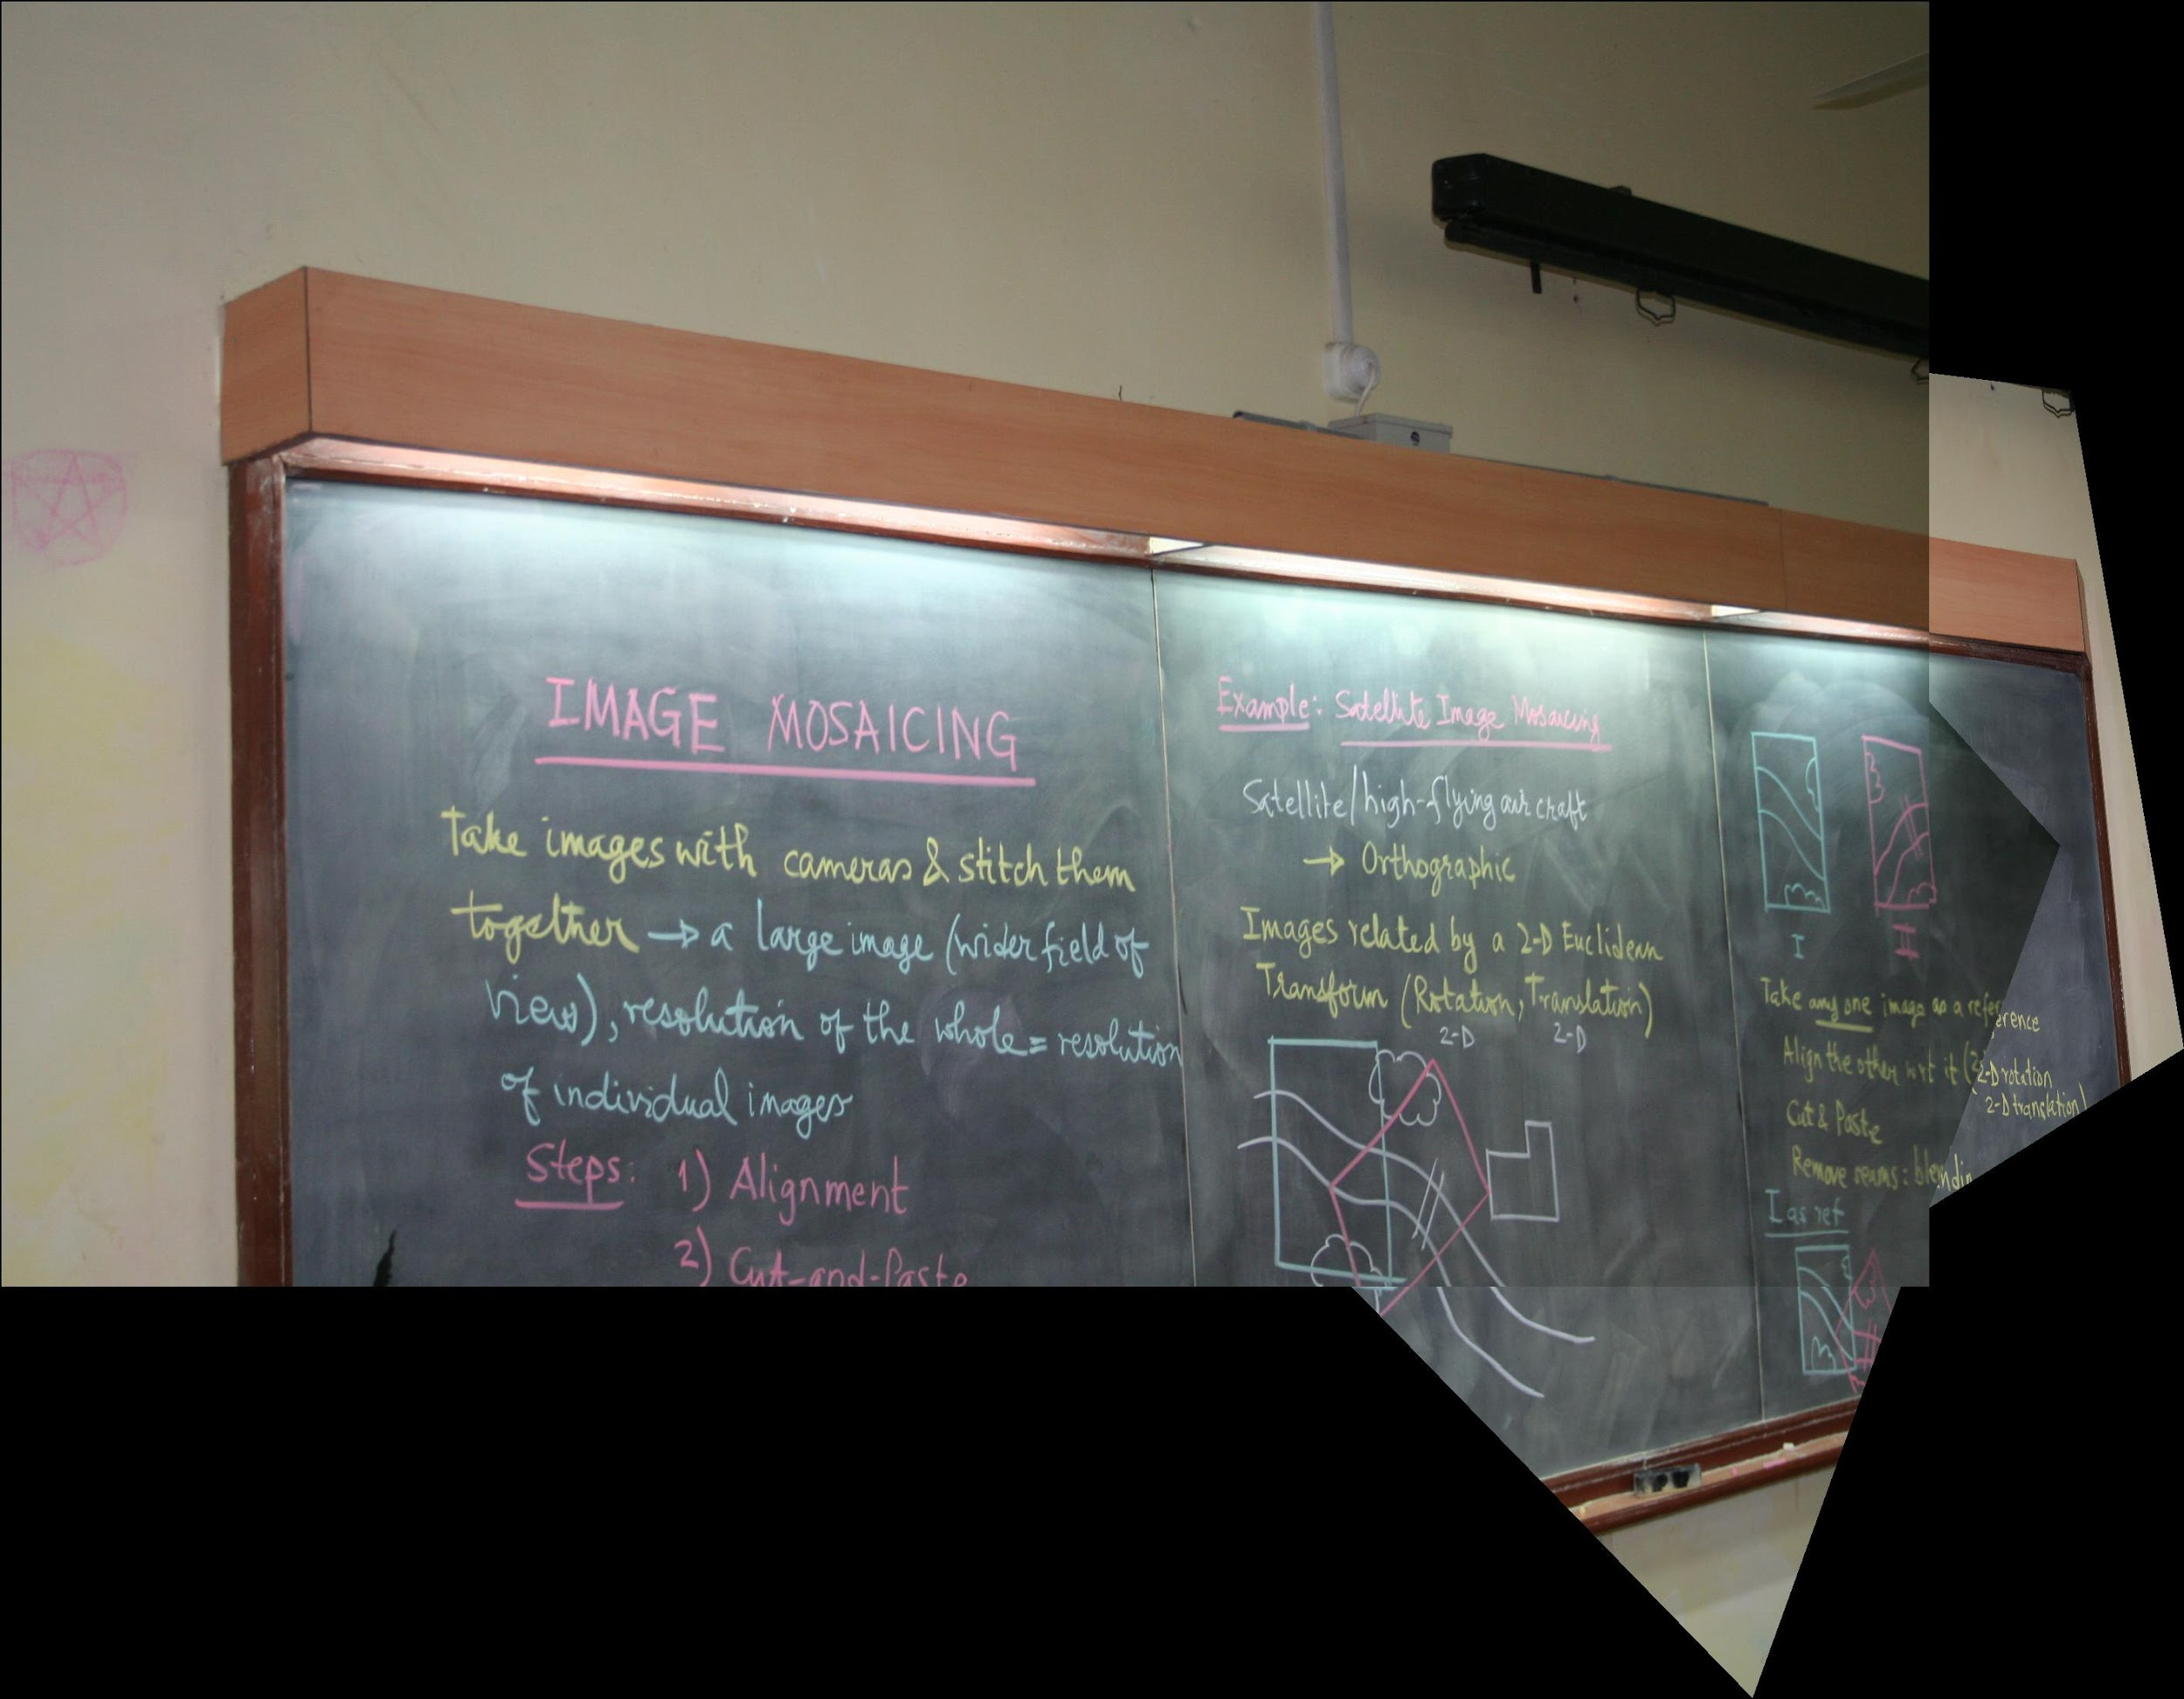 IMAGE MOSAICING
Take images with cameras & stitch them
together → a large image (wider field of
view), resolution of the whole = resolution
of individual images
Steps: 1) Alignment
2) Cut-and-Paste
Example: Satellite Image Mosaicing
Satellite/high-flying air craft
→ Orthographic
Images related by a 2-D Euclidean
Transform (Rotation, Translation)
2-D 2-D
I II
Take any one image as a reference
Align the other wrt it (2-D rotation
2-D translation)
Cut & Paste
Remove seams: blendin
I as ref